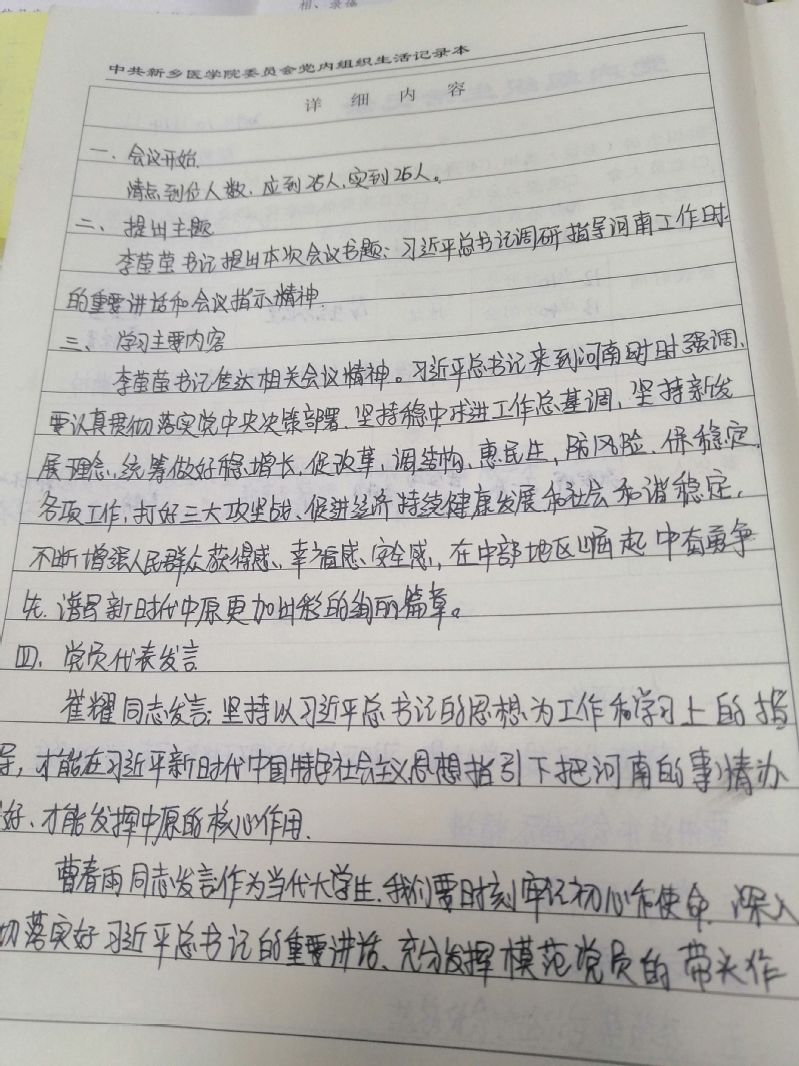 中共新乡医学院委员会党内组织生活记录本
详细内容
一、会议开始
清点到位人数,应到25人,实到25人。
二、提出主题
李莹莹书记提出本次会议书题:习近平总书记调研指导河南工作时
的重要讲话和会议指示精神.
三、学习主要内容
李莹莹书记传达相关会议精神。习近平总书记来到河南时时强调,
要认真贯彻落实党中央决策部署,坚持稳中求进工作总基调,坚持新发
展理念,统筹做好稳增长,促改革,调结构,惠民生,防风险、保稳定.
各项工作,打好三大攻坚战、促进经济持续健康发展和社会和谐稳定,
不断增强人民群众获得感、幸福感、安全感,在中部地区崛起中奋勇争
先.谱写新时代中原更加出彩的绚丽篇章。
四、党员代表发言
崔耀同志发言:坚持以习近平总书记的思想为工作和学习上的指
导,才能在习近平新时代中国特色社会主义思想指引下把河南的事情办
好、才能发挥中原的核心作用.
曹春雨同志发言作为当代大学生.我们要时刻牢记初心和使命,深入
切落实好习近平总书记的重要讲话、充分发挥模范党员的带头作